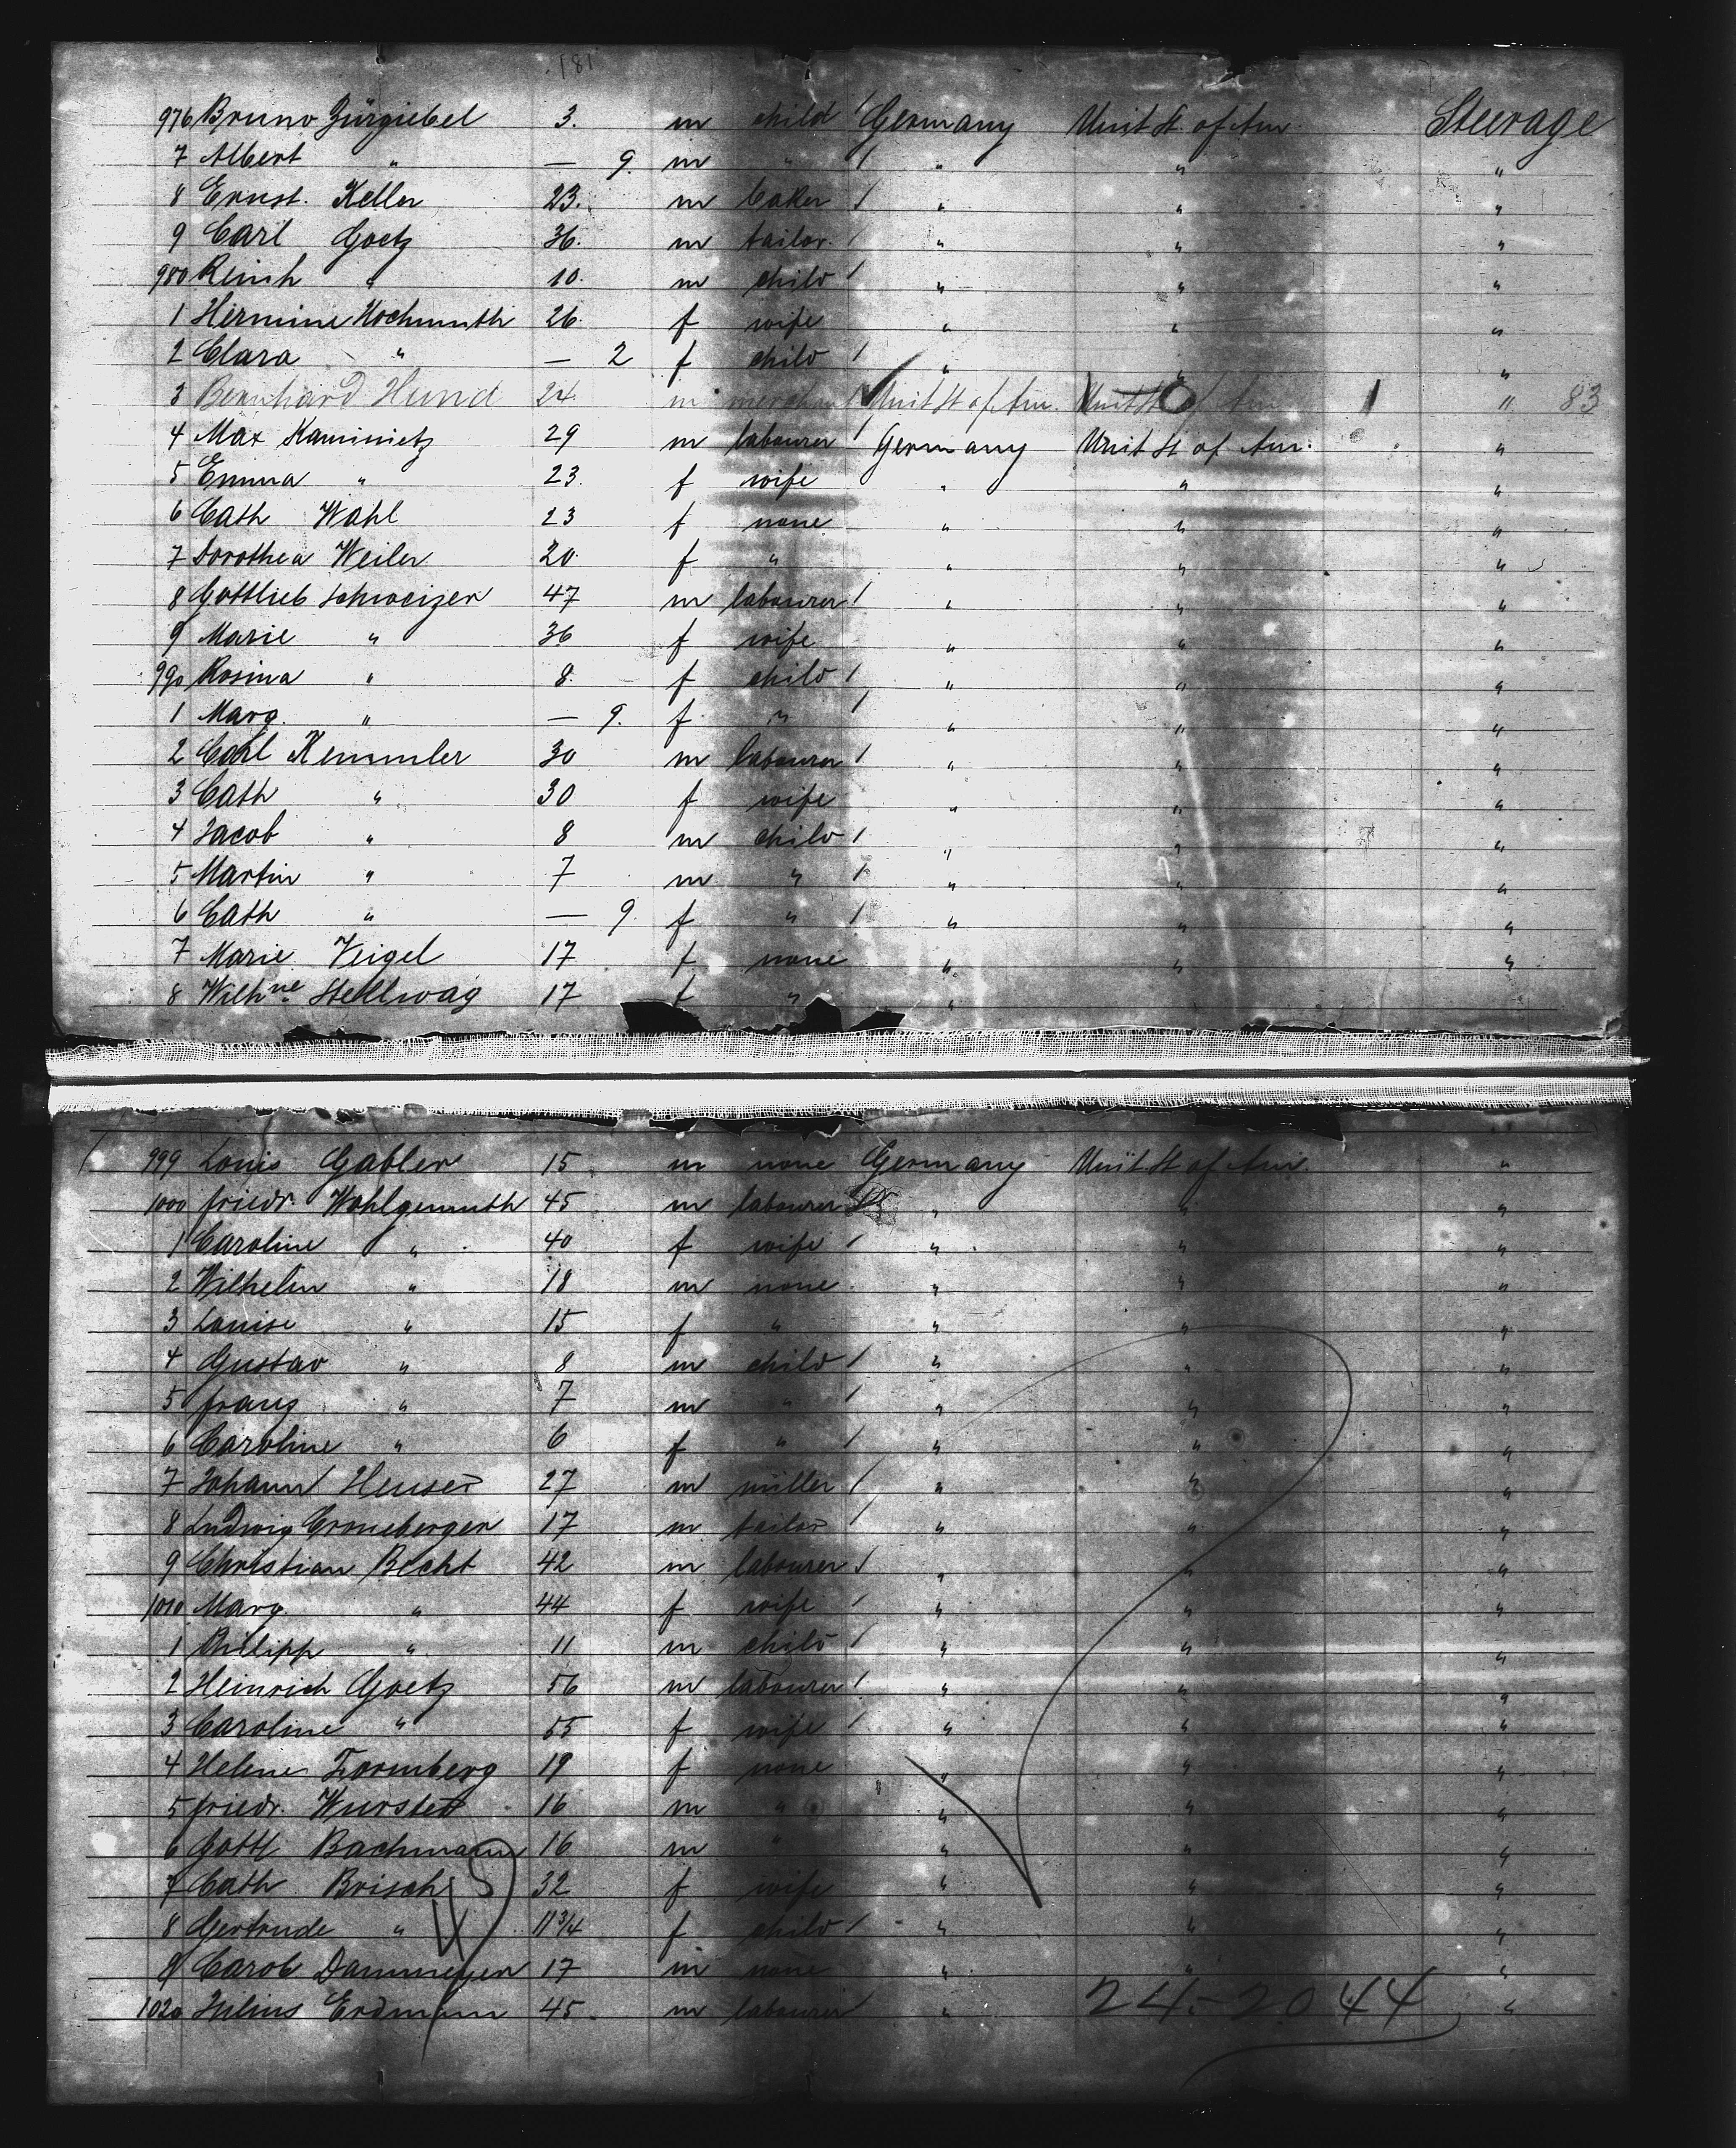 181
976 Bruno Zürgiebel 3. m child / Germany Unit St. of Am. Steerage
7 Albert " — 9. m " / " " "
8 Ernst. Keller 23. m baker / " " "
9 Carl Goetz 36. m tailor. / " " "
980 Reinh " 10. m child / " " "
1 Hermine Hochmuth 26. f wife " " "
2 Clara " — 2 f child / " " "
3 Bernhard Hund 24. m merchant Unit St of Am. Unit St of Am 1 " 83
4 Max Kaminietz 29 m labourer / Germany Unit St of Am. "
5 Emma " 23. f wife " " "
6 Cath Wahl 23 f none " " "
7 Dorothea Weiler 20. f " " " "
8 Gottlieb Schweizer 47 m labourer / " " "
9 Marie " 36 f wife " " "
990 Rosina " 8. f child / " " "
1 Marg. " — 9. f. " / " " "
2 Carl Kemmler 30 m labourer / " " "
3 Cath " 30 f wife " " "
4 Jacob " 8 m child / " " "
5 Martin " 7 m " / " " "
6 Cath " — 9. f " / " " "
7 Marie Veigel 17 f none " " "
8 Wilhne Stellwag 17 f " "
999 Louis Gabler 15 m none Germany Unit St of Am. "
1000 Friedr. Wohlgemuth 45 m labourer " " "
1 Caroline " 40 f wife / " " "
2 Wilhelm " 18 m none " " "
3 Louise " 15 f " " " "
4 Gustav " 8 m child / " " "
5 Franz " 7 m " / " " "
6 Caroline " 6 f " / " " "
7 Johann Heuser 27 m müller / " " "
8 Ludwig Croneberger 17 m tailor / " " "
9 Christian Becht 42 m labourer / " " "
1010 Marg. " 44 f wife / " " "
1 Philipp " 11 m child / " " "
2 Heinrich Goetz 56 m labourer / " " "
3 Caroline " 55 f wife / " " "
4 Helene Zornberg 19 f none " " "
5 Friedr. Wurster 16 m " " " "
6 Gottl Bachmann 16 m " " " "
7 Cath Brisch 32 f wife " " "
8 Gertrude " 11 3/4 f child / " " "
9 Carob Dammeyer 17 m none " " "
1020 Julius Erdmann 45. m labourer " 24-2044 "